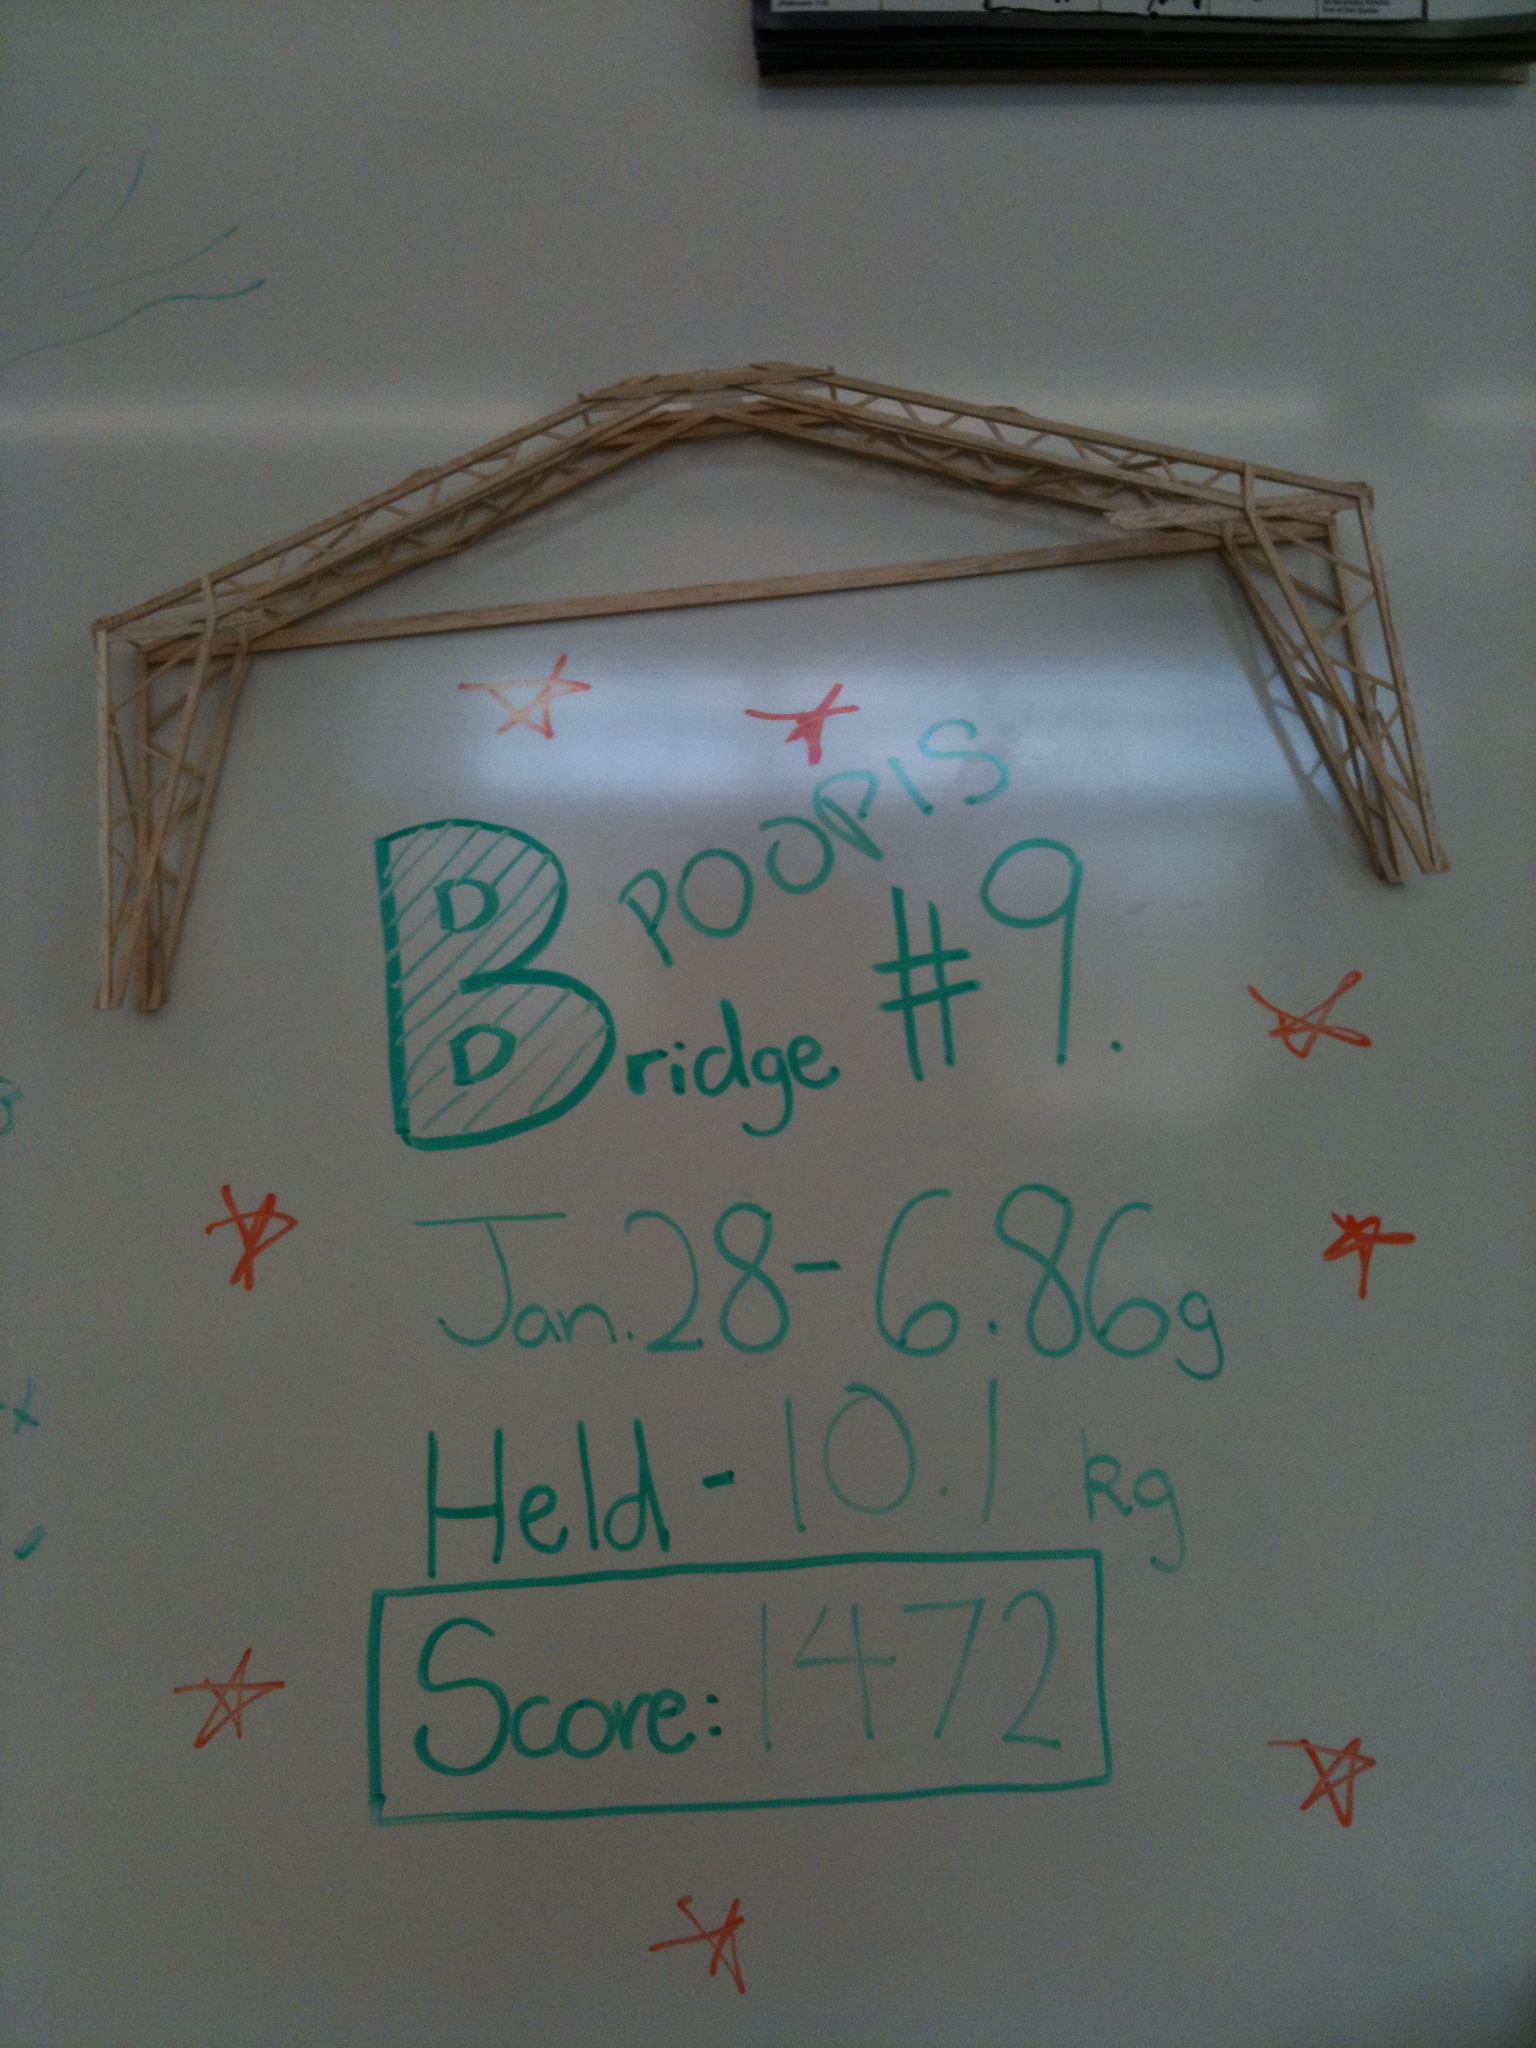 POOPIS
Bridge #9.
Jan.28-6.86g
Held - 10.1 kg
Score: 1472